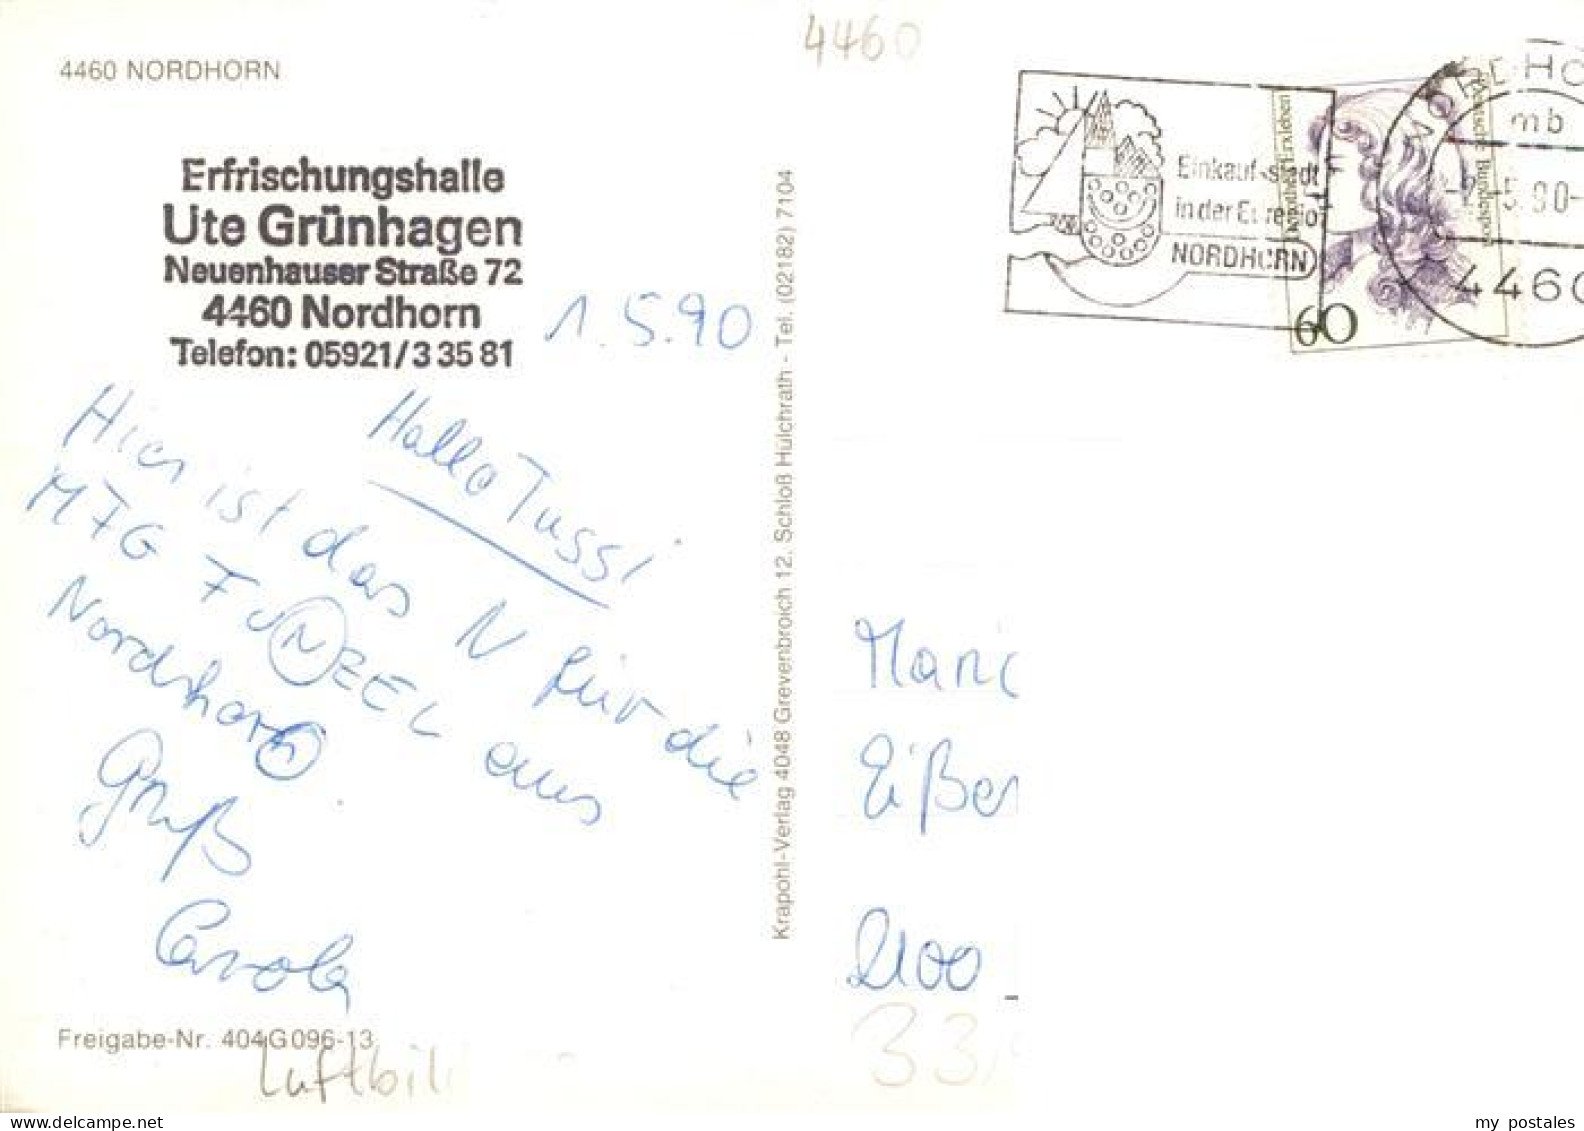 4460 NORDHORN
Erfrischungshalle
Ute Grünhagen
Neuenhauser Straße 72
4460 Nordhorn
Telefon: 05921/3 35 81
1.5.90
Hallo Tussi
Hier ist das N für die
MFG FUNEEL aus
Nordhorn.
Gruß
Carola
Freigabe-Nr. 404G096-13
Luftbil
Krapohl-Verlag 4048 Grevenbroich 12. Schloß Hülchrath - Tel. (02182) 7104
4460
Einkaufsstadt
in der Euregio
NORDHORN
Dorothea Erxleben
Deutsche Bundespost
60
NORDHO
mb
5.90-
4460
Mari
Eißer
2100
33,
my postales